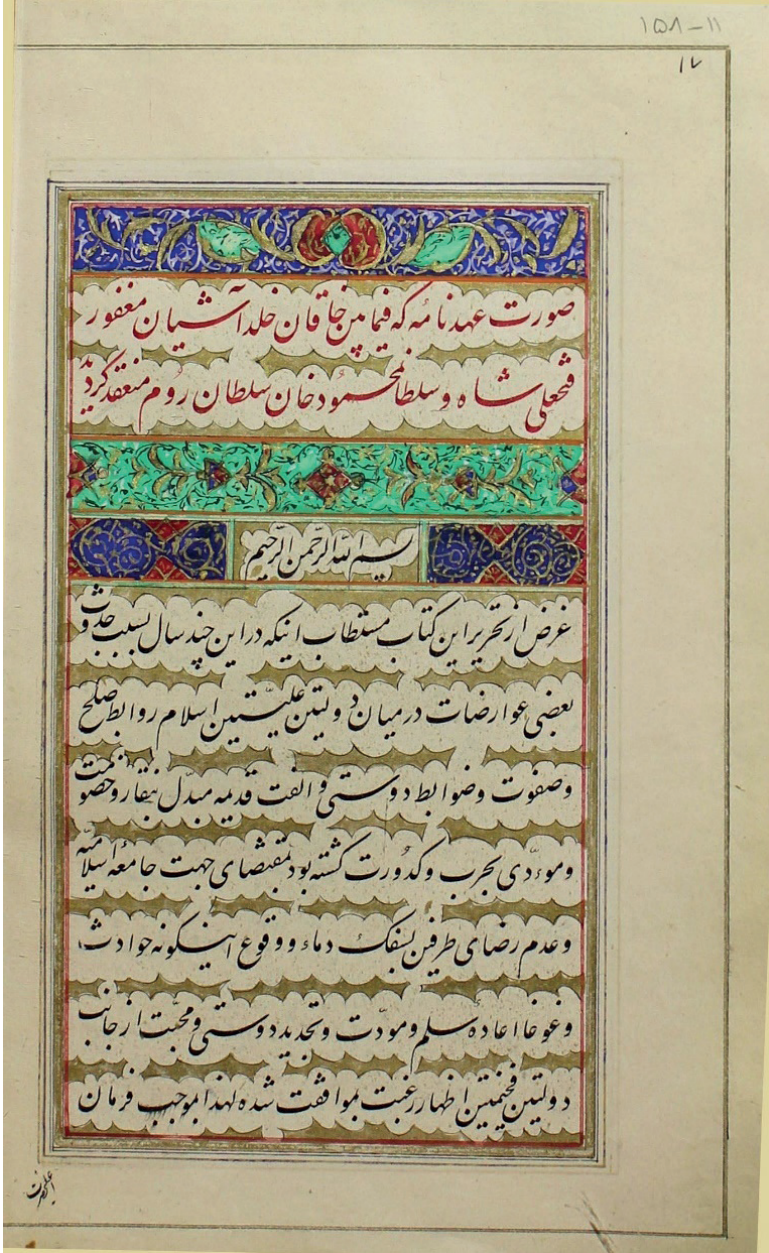 ۱۵۸-۱۱
۱۷
صورت عهدنامه که فیمابین خاقان خلد آشیان مغفور
فتحعلی شاه و سلطان محمود خان سلطان روم منعقد گردید
بسم الله الرحمن الرحیم
غرض از تحریر این کتاب مستطاب اینکه در این چند سال بسبب حدوث
بعضی عوارضات در میان دولتین علیتین اسلام روابط صلح
وصفوت وضوابط دوستی و الفت قدیمه مبدّل بنقار وخصومت
وموءدّی بحرب وکدورت گشته بود بمقتضای جهت جامعهٔ اسلامیّه
وعدم رضای طرفین بسفک دماء و وقوع اینگونه حوادث
وغوغا اعاده سلم ومودّت وتجدید دوستی ومحبّت از جانب
دولتین فخیمتین اظهار رغبت بموافقت شده لهذا بموجب فرمان